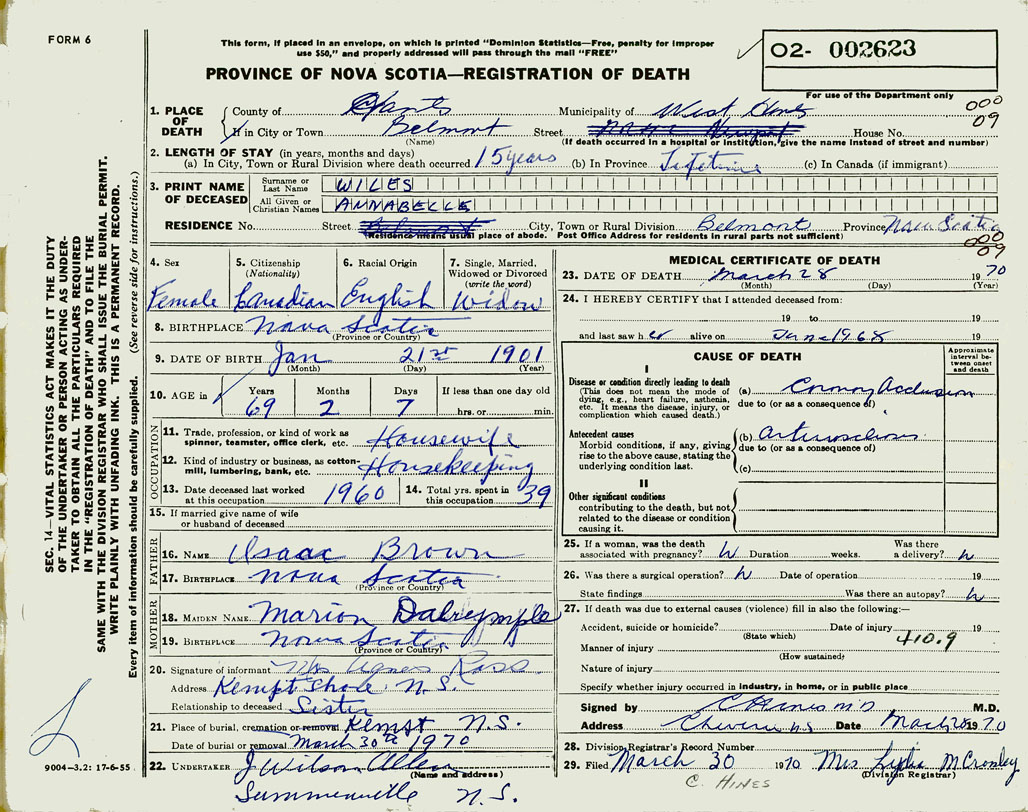 FORM 6
This form, if placed in an envelope, on which is printed "Dominion Statistics—Free, penalty for improper
use $50," and properly addressed will pass through the mail "FREE"
O2- 002623
PROVINCE OF NOVA SCOTIA—REGISTRATION OF DEATH
For use of the Department only
000
09
1. PLACE OF DEATH
County of Hants Municipality of West Hants
If in City or Town Belmont Street House No.
(Name) (If death occurred in a hospital or institution, give the name instead of street and number)
2. LENGTH OF STAY (in years, months and days)
(a) In City, Town or Rural Division where death occurred 15 years (b) In Province Lifetime (c) In Canada (if immigrant)
3. PRINT NAME OF DECEASED
Surname or Last Name WILES
All Given or Christian Names ANNABELLE
RESIDENCE No. Street Belmont City, Town or Rural Division Belmont Province Nova Scotia
Residence means usual place of abode. Post Office Address for residents in rural parts not sufficient)
000
09
4. Sex Female
5. Citizenship (Nationality) Canadian
6. Racial Origin English
7. Single, Married, Widowed or Divorced (write the word) Widow
8. BIRTHPLACE Nova Scotia
(Province or Country)
9. DATE OF BIRTH Jan 21st 1901
(Month) (Day) (Year)
10. AGE in Years 69 Months 2 Days 7 If less than one day old hrs. or min.
OCCUPATION
11. Trade, profession, or kind of work as spinner, teamster, office clerk, etc. Housewife
12. Kind of industry or business, as cotton-mill, lumbering, bank, etc. Housekeeping
13. Date deceased last worked at this occupation 1960
14. Total yrs. spent in this occupation 39
15. If married give name of wife or husband of deceased
FATHER
16. NAME Isaac Brown
17. BIRTHPLACE Nova Scotia
(Province or Country)
MOTHER
18. MAIDEN NAME Marion Dalrymple
19. BIRTHPLACE Nova Scotia
(Province or Country)
20. Signature of informant Mrs Agnes Ross
Address Kempt Shore N.S.
Relationship to deceased Sister
21. Place of burial, cremation or removal Kempt N.S.
Date of burial or removal March 30th 1970
22. UNDERTAKER J Wilson Allen
(Name and address)
Summerville N.S.
MEDICAL CERTIFICATE OF DEATH
23. DATE OF DEATH March 28 1970
(Month) (Day) (Year)
24. I HEREBY CERTIFY that I attended deceased from:
19 to 19
and last saw her alive on June 1968 19
CAUSE OF DEATH
Approximate interval between onset and death
I
Disease or condition directly leading to death
(This does not mean the mode of dying, e.g., heart failure, asthenia, etc. It means the disease, injury, or complication which caused death.)
(a) Coronary Occlusion
due to (or as a consequence of)
Antecedent causes
Morbid conditions, if any, giving rise to the above cause, stating the underlying condition last.
(b) Arteriosclerosis
due to (or as a consequence of)
(c)
II
Other significant conditions contributing to the death, but not related to the disease or condition causing it.
25. If a woman, was the death associated with pregnancy? N Duration weeks. Was there a delivery? N
26. Was there a surgical operation? N Date of operation 19
State findings Was there an autopsy? N
27. If death was due to external causes (violence) fill in also the following:—
Accident, suicide or homicide? Date of injury 19
(State which)
410.9
Manner of injury
(How sustained)
Nature of injury
Specify whether injury occurred in industry, in home, or in public place
Signed by C Hines MD M.D.
Address Cheverie N.S. Date March 28 1970
28. Division Registrar's Record Number
29. Filed March 30 1970 Mrs Lydia McCrossley
(Division Registrar)
C. HINES
SEC. 14—VITAL STATISTICS ACT MAKES IT THE DUTY
OF THE UNDERTAKER OR PERSON ACTING AS UNDER-
TAKER TO OBTAIN ALL THE PARTICULARS REQUIRED
IN THE "REGISTRATION OF DEATH" AND TO FILE THE
SAME WITH THE DIVISION REGISTRAR WHO SHALL ISSUE THE BURIAL PERMIT.
WRITE PLAINLY WITH UNFADING INK. THIS IS A PERMANENT RECORD.
Every item of information should be carefully supplied. (See reverse side for instructions.)
9004—3.2: 17-6-55